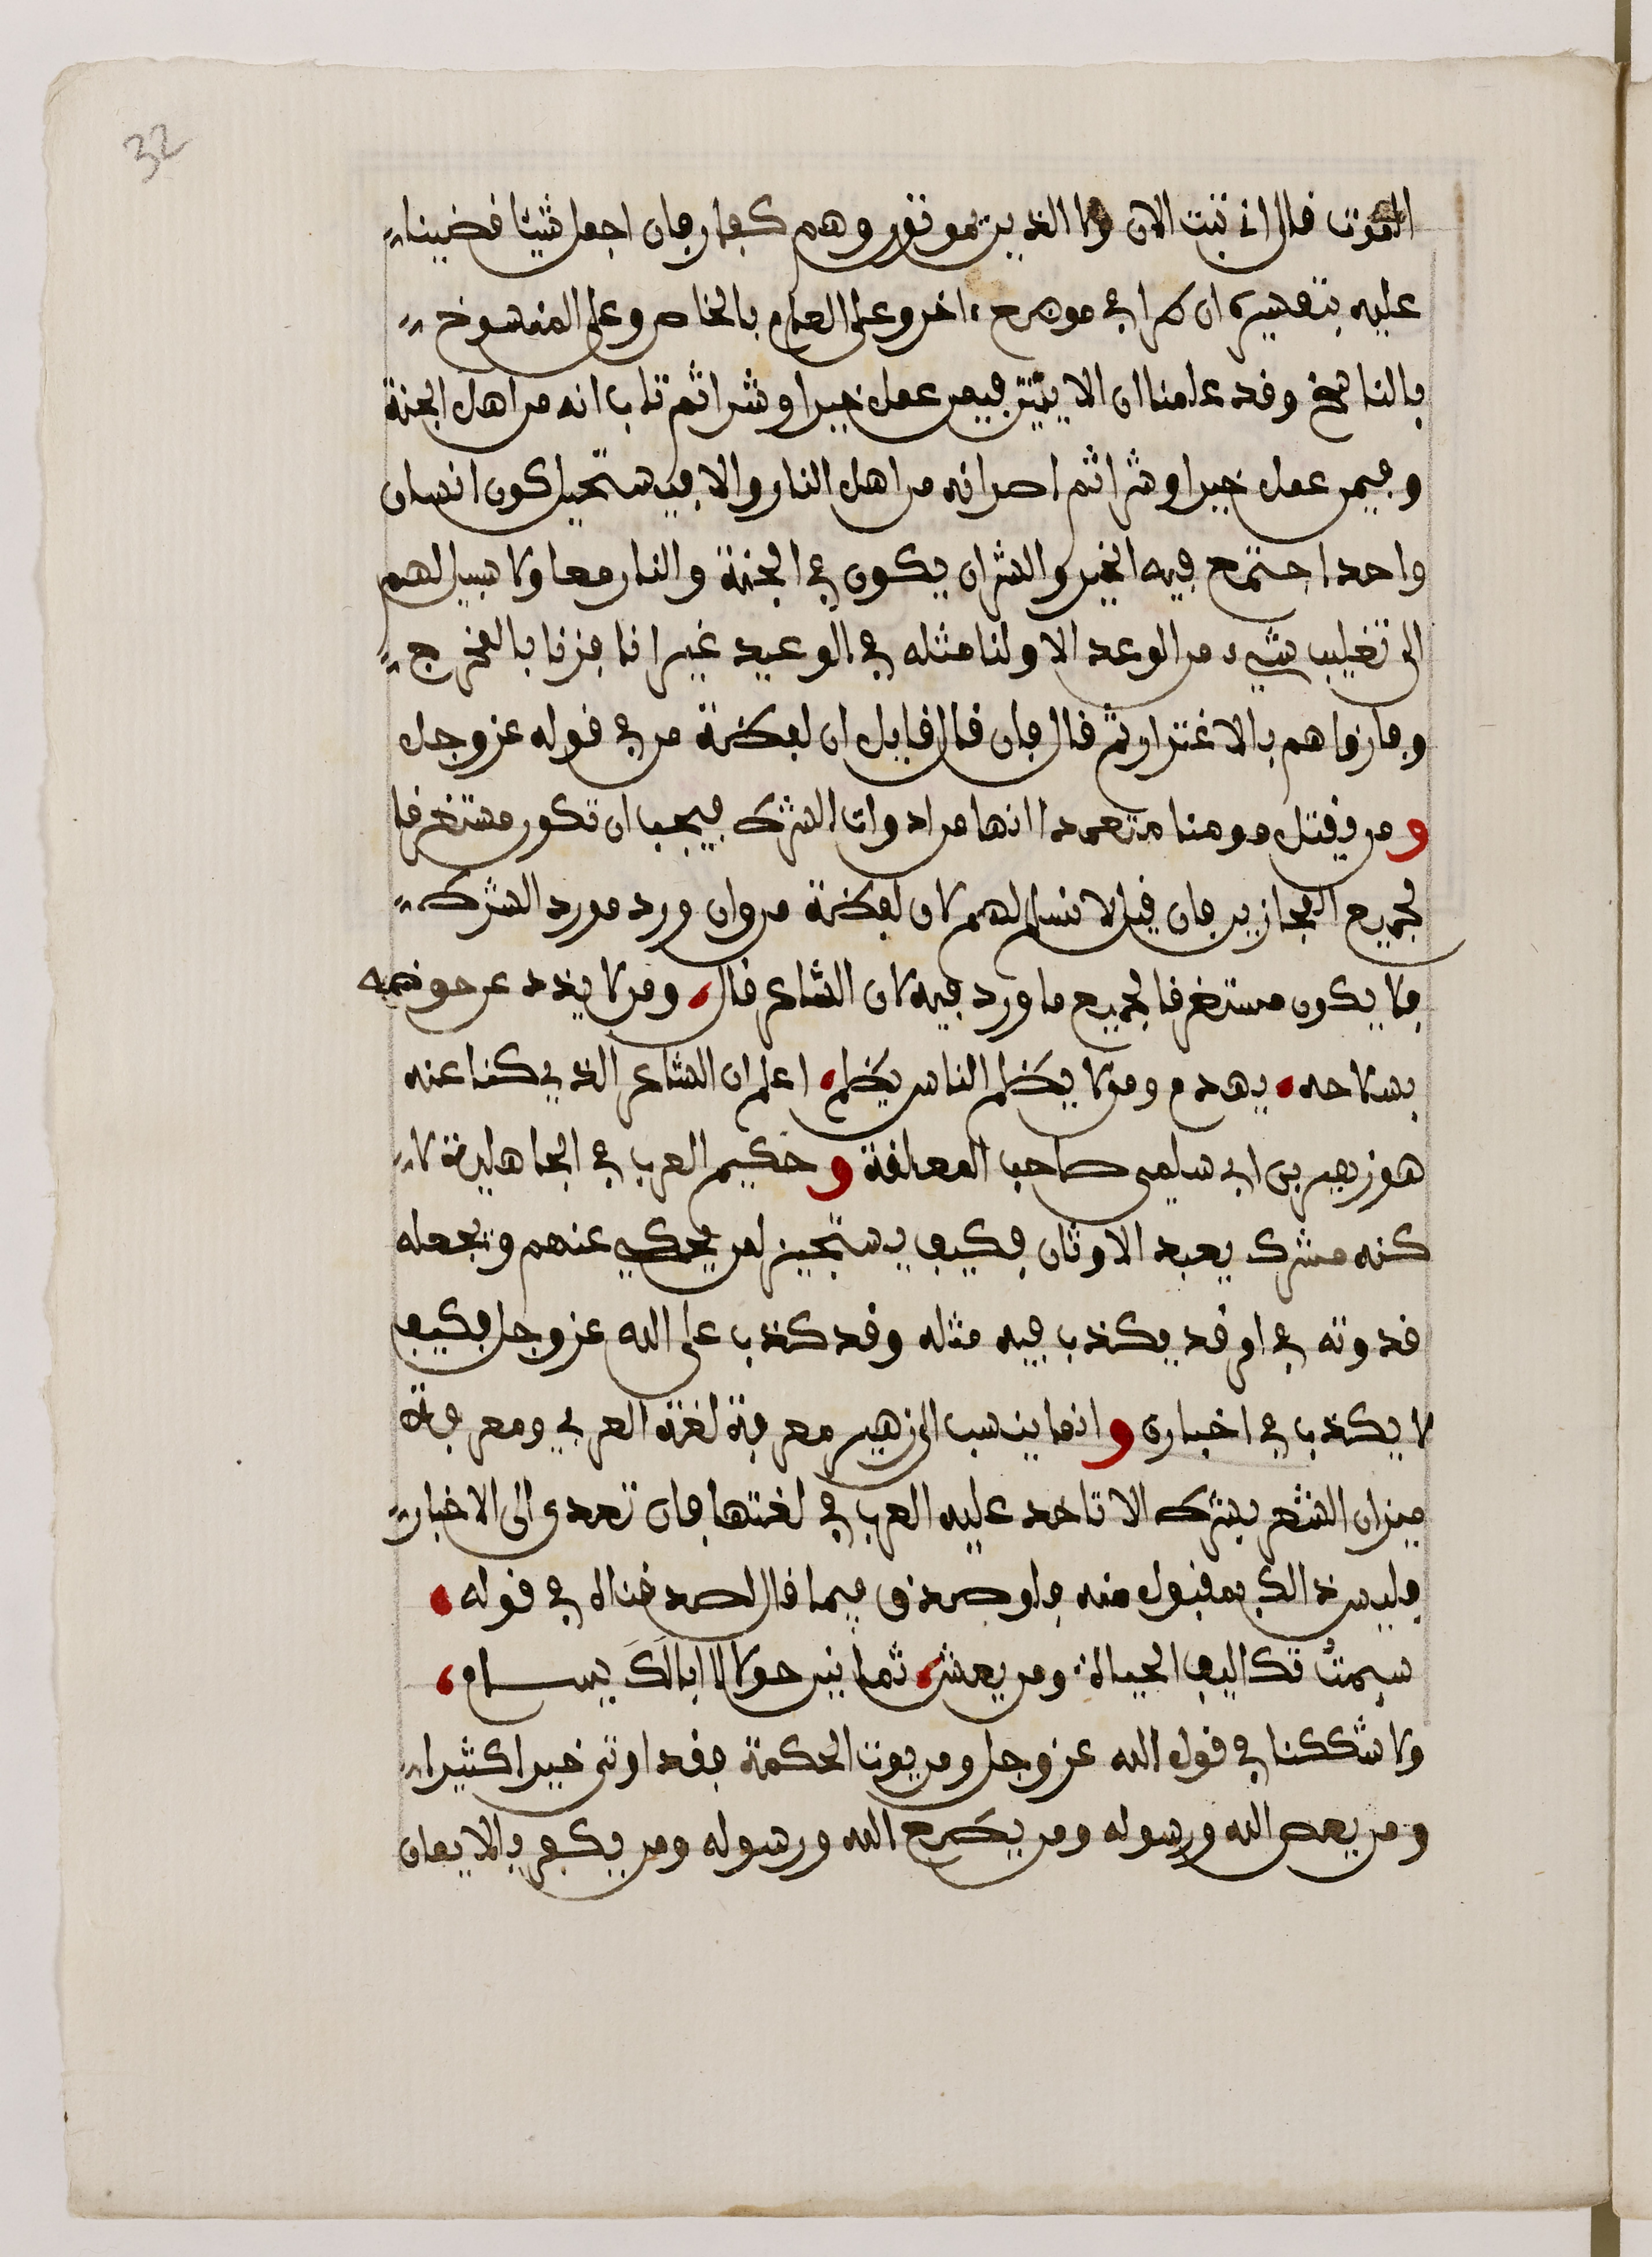 32
الموت قال اني تبت الان ولا الذين يموتون وهم كفار فان اجمل شيئا قضينا
عليه بتفسيره ان طرا في موضع اخر وعلى العام بالخاص وعلى المنسوخ
بالناسخ وقد علمنا ان الايتين فيمن عمل خيرا وشرا ثم تاب انه من اهل الجنة
وفيمن عمل خيرا وشرا ثم اصر انه من اهل النار والا فيستحيل كون انسان
واحد اجتمع فيه الخير والشر ان يكون في الجنة والنار معا ولا سبيل لهم
الى تغليب شيء من الوعد الا ولنا مثله في الوعيد غير انا فزنا بالمخرج
وفازوا هم بالاغترار ثم قال فان قال قايل ان لفظة من في قوله عز وجل
ومن يقتل مومنا متعمدا انها من ادوات الشرك فيجب ان تكون مستغرقا
لجميع المجازين فان قيل لا نسلم لهم لان لفظة من وان ورد مورد الشرك
فلا يكون مستغرقا لجميع ما ورد فيه لان الشاعر قال ومن لا يذد عن حوضه
بسلاحه يهدم ومن لا يظلم الناس يظلم اعلم ان الشاعر الذي كنا عنه
هو زهير بن ابي سليمى صاحب المعلقة وحكيم العرب في الجاهلية لا
كنه مشرك يعبد الاوثان فكيف يستجيز لمن يحكي عنهم ويجعله
قدوته في امر قد يكذب فيه مثله وقد كذب على الله عز وجل فكيف
لا يكذب في اخباره وانما ينسب الى زهير معرفة لغة العربي ومعرفة
ميزان الشعر بشرك الا تاخد عليه العرب في لغتها فان تعدى الى الاخبار
فليس ذالك بمقبول منه فلو صدق فيما قال لصدقناه في قوله
سيمتُ تكاليف الحياة ومن يعش ثمانين حولا لا ابالَكَ يسام
ولا شككنا في قول الله عز وجل ومن يوت الحكمة فقد اوتي خيرا كثيرا
ومن يعص الله ورسوله ومن يطع الله ورسوله ومن يكفر بالايمان